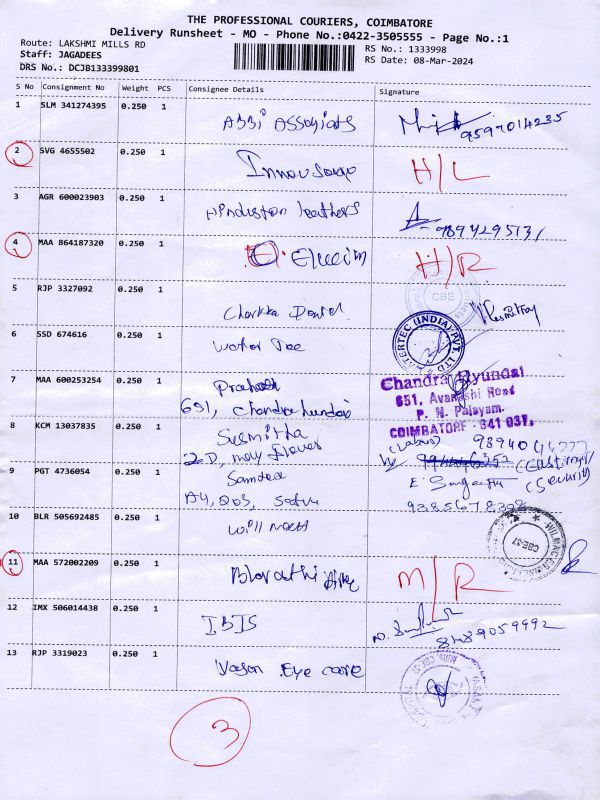 THE PROFESSIONAL COURIERS, COIMBATORE
Delivery Runsheet - MO - Phone No.:0422-3505555 - Page No.:1
Route: LAKSHMI MILLS RD
RS No.: 1333998
Staff: JAGADEES
RS Date: 08-Mar-2024
DRS No.: DCJB133399801
S No Consignment No Weight PCS Consignee Details Signature
1 SLM 341274395 0.250 1 ABBi Associats 9597014235
2 SVG 4655502 0.250 1 H/L
3 AGR 600023903 0.250 1 Hinduston leathers 9894295131
4 MAA 864187320 0.250 1 H/R
CBE
5 RJP 3327092 0.250 1
6 SSD 674616 0.250 1 Water Tec
WATERTEC (INDIA) PVT. LTD
7 MAA 600253254 0.250 1
651, Chandra hundai
Chandra Hyundai
651, Avanashi Road
P. N. Palayam.
COIMBATORE - 641 037.
8 KCM 13037835 0.250 1 Susmitha
2-D, may flower
9 PGT 4736054 0.250 1
A4, 203,
(Security)
10 BLR 505692485 0.250 1
CBE-37
11 MAA 572002209 0.250 1 Bharathi M/R
12 IMX 506014438 0.250 1 IBIS 8489059992
13 RJP 3319023 0.250 1 Vasan Eye care
3